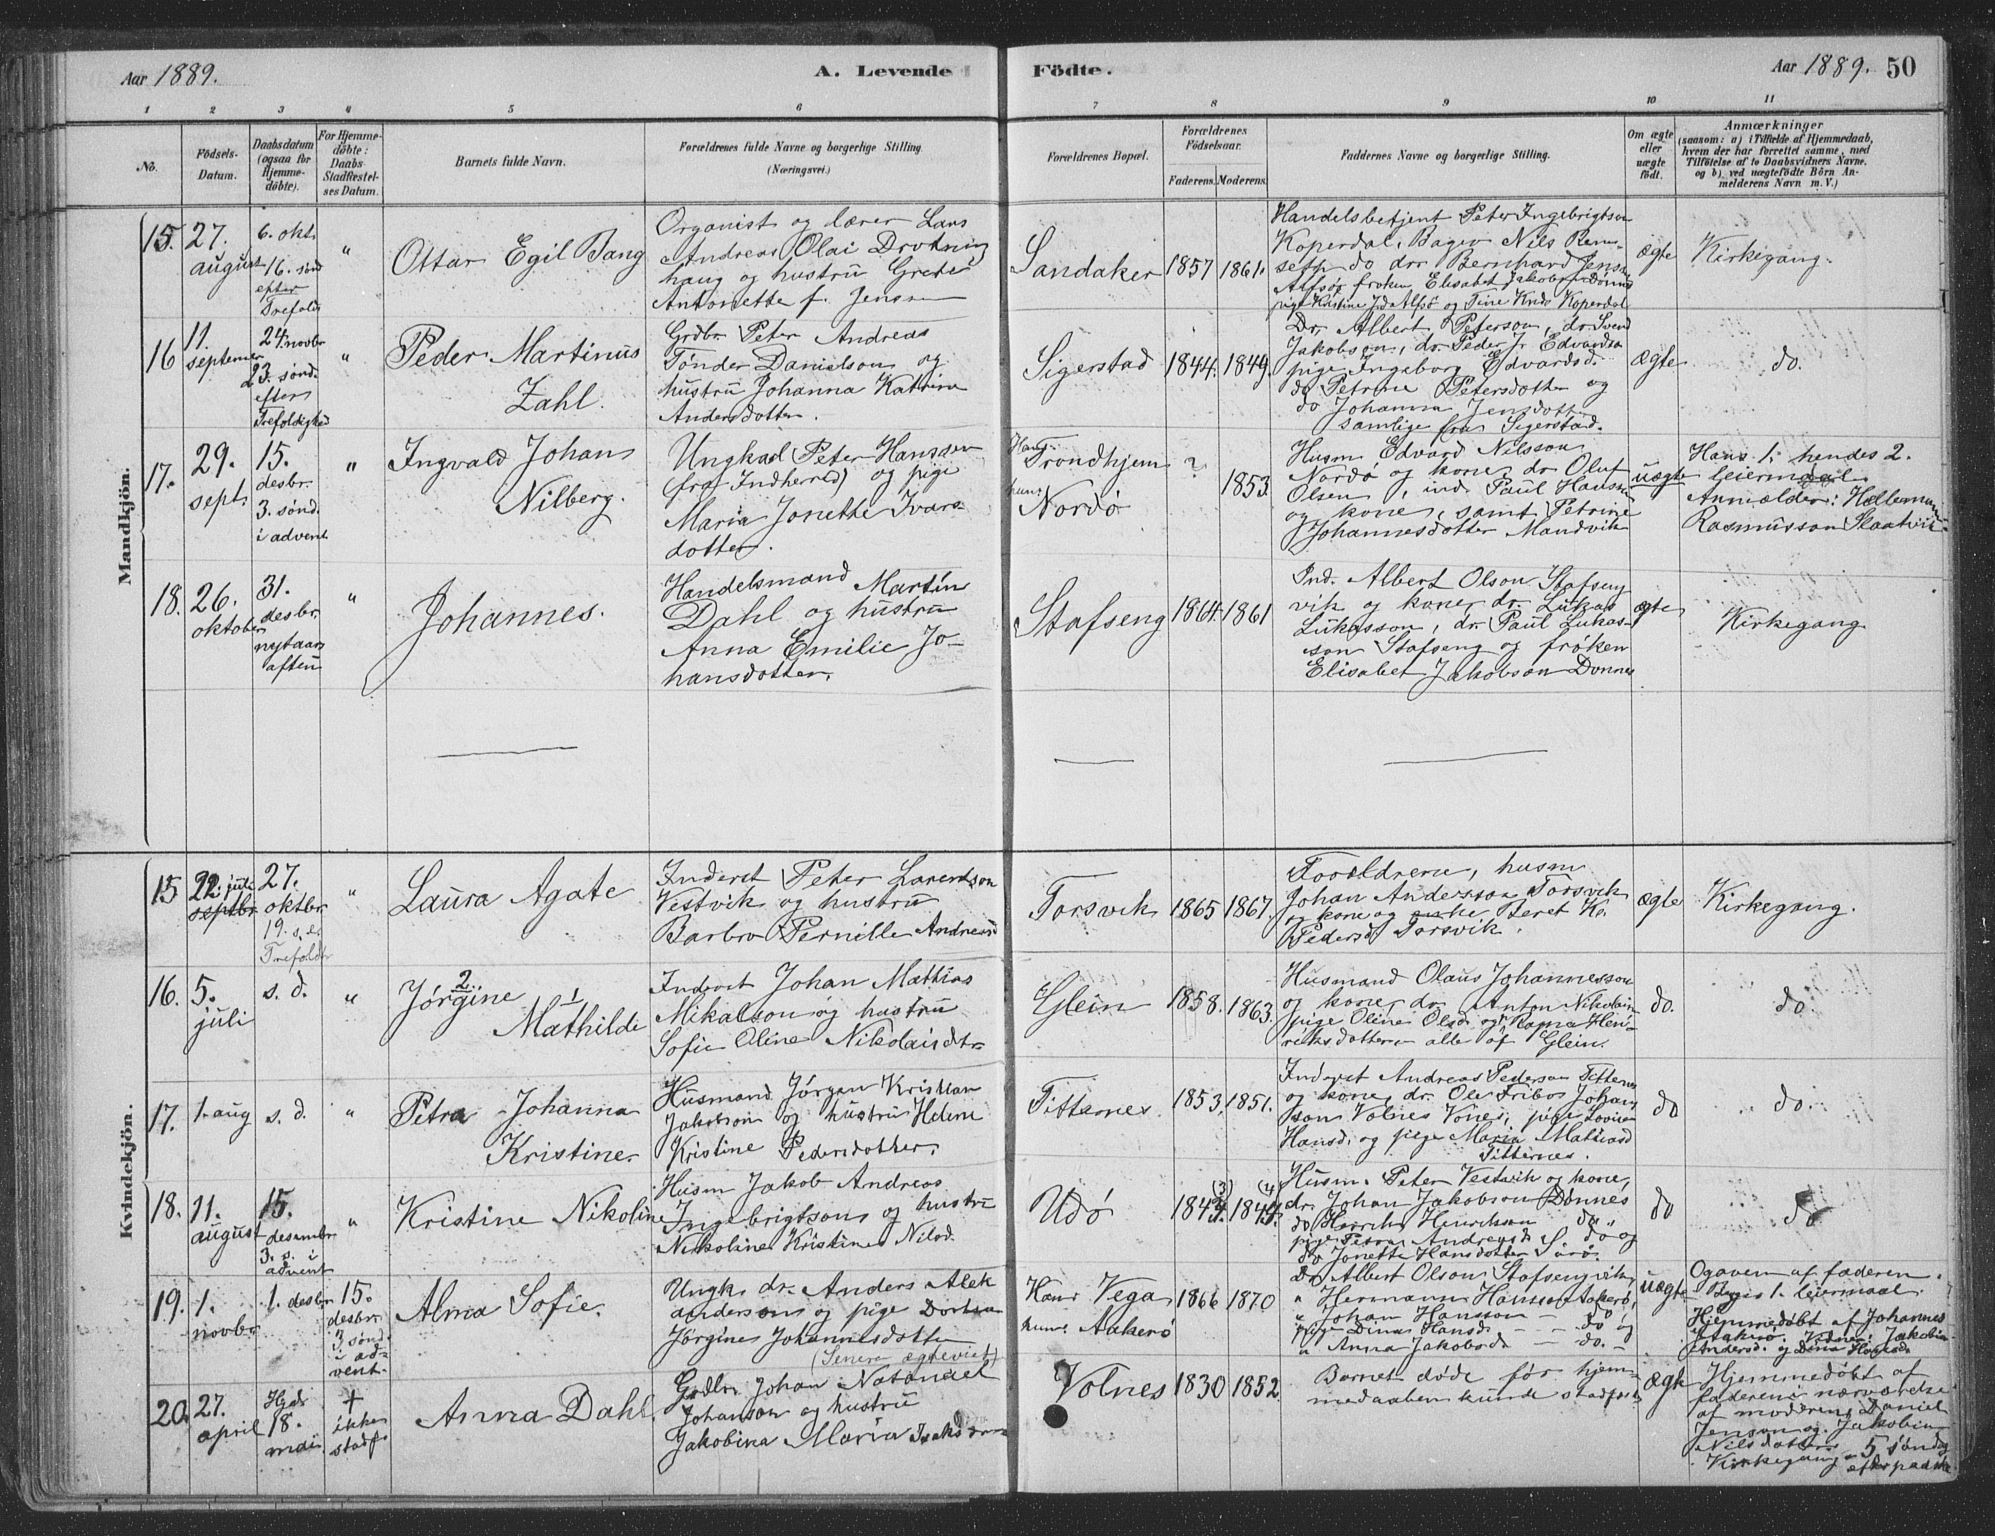 Aar 1889.
A. Levende
Födte.
Aar 1889. 50
1 2 3 4 5 6 7 8 9 10 11
No.
Födsels-
Datum.
Daabsdatum
(ogsaa for
Hjemme-
döbte).
For Hjemme-
döbte:
Daabs-
Stadfæstel-
ses Datum.
Barnets fulde Navn.
Forældrenes fulde Navne og borgerlige Stilling
(Næringsvei.)
Forældrenes Bopæl.
Forældrenes
Födselsaar.
Faderens. Moderens.
Faddernes Navne og borgerlige Stilling.
Om ægte
eller
uægte
födt.
Anmærkninger
(saasom: a) i Tilfælde af Hjemmedaab,
hvem der har forrettet samme, med
Tilföielse af to Daabsvidners Navne,
og b) ved uægtefödte Börn An-
melderens Navn m. V.)
Mandkjön.
15. 27.
august
6. okt.
16. sønd
efter
Trefold.
"
Ottar Egil Bang
Organist og lærer Lars
Andreas Olai Drotning
haug og hustru Grete
Antonette f. Jensen
Sandaker
1857 1861.
Handelsbetjent Peter Ingebrigtson
Koperdal, Bager Nils Rem-
seth do dr Bernhard Jensen
Alfsø frøken Elisabet Jakobson Dønnes
pige Kristine Alfsø og Tine Koperdal
ægte
Kirkegang.
16 11.
september
24. novbr
23. sønd.
efter
Trefoldighed
"
Peder Martinus
Zahl.
Grdbr. Peter Andreas
Tønder Danielson og
hustru Johanna Katrine
Andersdotter.
Sigerstad
1844. 1849.
Dr. Albert Peterson, dr. Svend
Jakobson, dr. Peder Jr Edvardsen
pige Ingeborg Edvardsd.
do Petrine Petersdotter og
do Johanna Jensdotter
samlige fra Sigerstad.
ægte
do.
17. 29.
sept.
15.
desbr.
3. sønd.
i advent
"
Ingvald Johan
Nilberg.
Ungkarl Peter Hansen
(fra Indherred) og pige
Maria Jonette Ivars
dotter.
Hans
Trondhjem
hun:
Nordø
? 1853.
Husm Edvard Nilsson
Nordø og kone, dr Oluf
Olsen, ind. Paul Hansen
og kone, samt Petrine
Johannesdotter Mandvik
uægte
Hans 1, hendes 2.
leiermaal
Anmelder:
Rasmusson
18. 26.
oktober
31.
desbr.
nytaars
aften
"
Johannes.
Handelsmand Martin
Dahl og hustru
Anna Emilie Jo-
hansdotter.
Stafseng
1864. 1861
Ind. Albert Olson Stafseng
vik og kone, dr. Lukas
Lukasson, dr. Paul Lukas-
son Stafseng og frøken
Elisabet Jakobson Dønnes
ægte
Kirkegang
Kvindekjön.
15 22. juli
septbr
27.
oktbr
19. s. e.
Trefoldh
"
Laura Agate
Inderst Peter Larentson
Vestvik og hustru
Barbro Pernille Andreasd
Torsvik
1865 1867.
Forældrene, husm
Johan Anderson Torsvik
og kone og Beret K.
Pedersd Torsvik.
ægte
Kirkegang.
16. 5.
juli
s. d.
"
2. 1
Jørgine
Mathilde
Inderst Johan Mathias
Mikalson og hustru
Sofie Oline Nikolaisdtr
Glein
1858. 1863.
Husmand Olaus Johannesson
og kone, dr Anton Nikolais
pige Oline Olsd og Ragna Hen-
riksdotter alle af Glein.
do.
do.
17. 1. aug
s. d.
"
Petra Johanna
Kristine.
Husmand Jørgen Kristian
Jakobson og hustru Helene
Kristine Pedersdotter.
Titternes.
1853. 1851.
Inderst Andreas Pederson Titternes
og kone, dr. Ole Tribos Johan
son Volnes Vones, pige Lovise
Hansd. og pige Maria Mathiasd
Titternes.
do
do.
18. 11.
august
15.
desembr
3. s. i
advent
"
Kristine Nikoline
Husm Jakob Andreas
Ingebrigtson og hustru
Nikoline Kristine Nilsd
Udø
(3) (4)
1844. 1844.
Husm. Peter Vestvik og kone,
dr. Johan Jakobson Dønnes
do Henrik Henrikson do.
pige Petra Andreasd do og
do Jonette Hansdotter Sørø
do
do
19. 1.
novbr
1. desbr
15.
desbr.
3. sønd
i ad-
vent.
Alma Sofie.
Ungk. dr. Anders Alek
anderson og pige Dortea
Jørgine Johannesdotter
(Senere ægteviet)
Hans Vega
hun: Aakerø
1866 1870
Dr. Albert Olson Stafsengvik,
" Herman Hanson Aakerø,
" Johan Hanson — do
pige Dina Hansd. — do og
" Anna Jakobsd — do.
uægte
Opgaven af faderen.
Begis 1. leiermaal.
Hjemmedøbt af Johannes
Aakerø. Vidner: Jakobine
Andersd. og Dina Hansd.
20. 27.
april
Hjd.
18.
mai.
+
ikke
stadf.
Anna Dahl.
Grdbr. Johan Natanael
Johanson og hustru
Jakobina Maria Isaksd
Volnes
1830 1852.
Barnet døde før hjem-
medaaben kunde stadfæstes
ægte
Hjemmedøbt af
faderen i nærværelse
af moderen, Daniel
Jenson og Jakobine
Nilsdotter.
Kirkegang 5 søndag
efter paaske